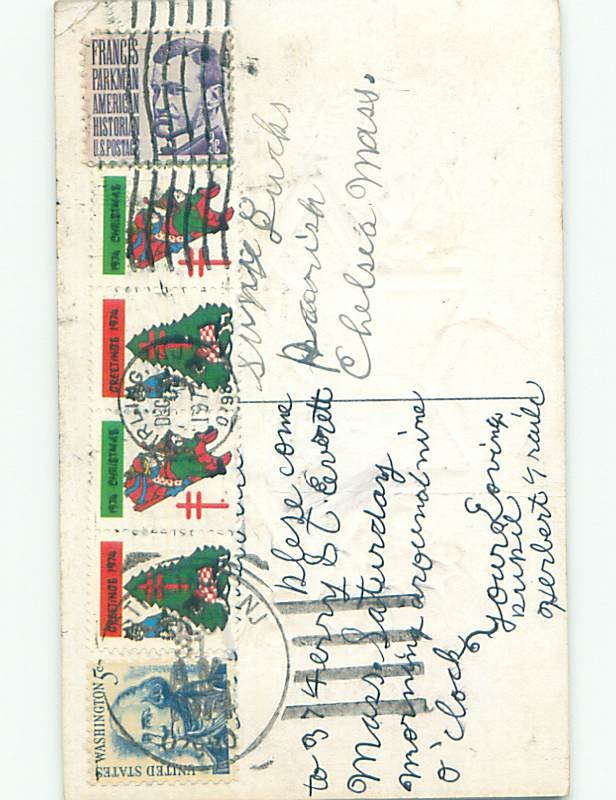 FRANCIS
PARKMAN
AMERICAN
HISTORIAN
U.S. POSTAGE
3c
1974 CHRISTMAS
GREETINGS 1974
1974 CHRISTMAS
GREETINGS 1974
WASHINGTON 5c
UNITED STATES
DEC
Parrish
Chelsea Mass.
plese come
to 37 Herry ST Everett
Mass. Saturday
morning around nine
o'clock
Your Loving
pupil